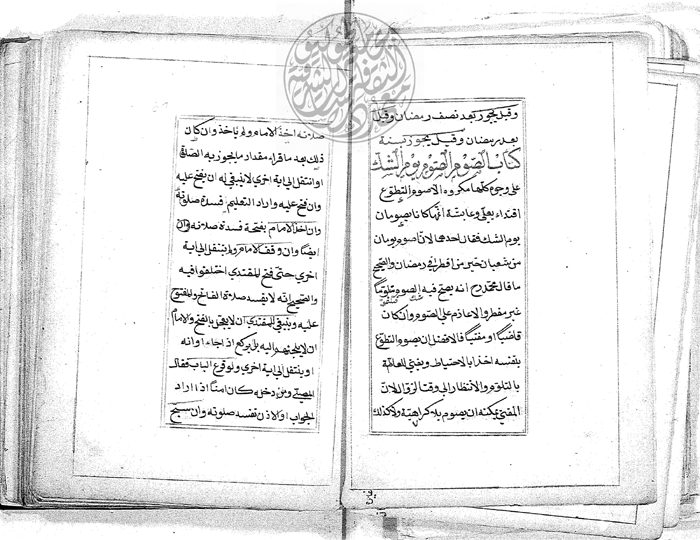 وقيل يجوز بعد نصف رمضان وقيل
بعد رمضان وقيل يجوز بنية
كتاب الصوم الصوم يوم الشك
على وجوه كلها مكروه الا صوم التطوع
اقتداء بعلي وعايشة انهما كانا يصومان
يوم الشك فقال احدهما لان اصوم يوما
من شعبان خير من افطر في رمضان والصحيح
ما قال محمد رح انه يصبح فيه الصوم متلوما
غير مفطر ولا عازم على الصوم وان كان
قاضيا او مفتيا فالافضل ان يصوم التطوع
بنفسه اخذا بالاحتياط ويفتي للعامة
بالتلوم والانتظار الى وقت الزوال لان
المفتي يمكنه ان يصوم بلا كراهية ولا كذلك
صلاته اخذ الامام ولم ياخذ وان كان
ذلك بعد ما قراء مقدار ما يجوز به الصلوة
او انتقل الى اية اخرى لا ينبغي له ان يفتح عليه
وان فتح عليه واراد التعليم فسدة صلوته
وان اخذ الامام بفتحه فسدة صلاته وان
ايضا وان وقف الامام ولم ينتقل الى اية
اخرى حتى فتح المقتدي اختلفوا فيه
والصحيح انه لا تفسد صلاة الفاتح ولا المفتوح
عليه وينبغي للمقتدي ان لا يعجل بالفتح وللامام
ان لا يلجئهم اليه بل يركع اذا جاء اوانه
او ينتقل الى اية اخرى ولو قرع الباب فقال
المصلي ومن دخله كان امنا اذا اراد
الجواب او الاذن تفسد صلوته وان سبح